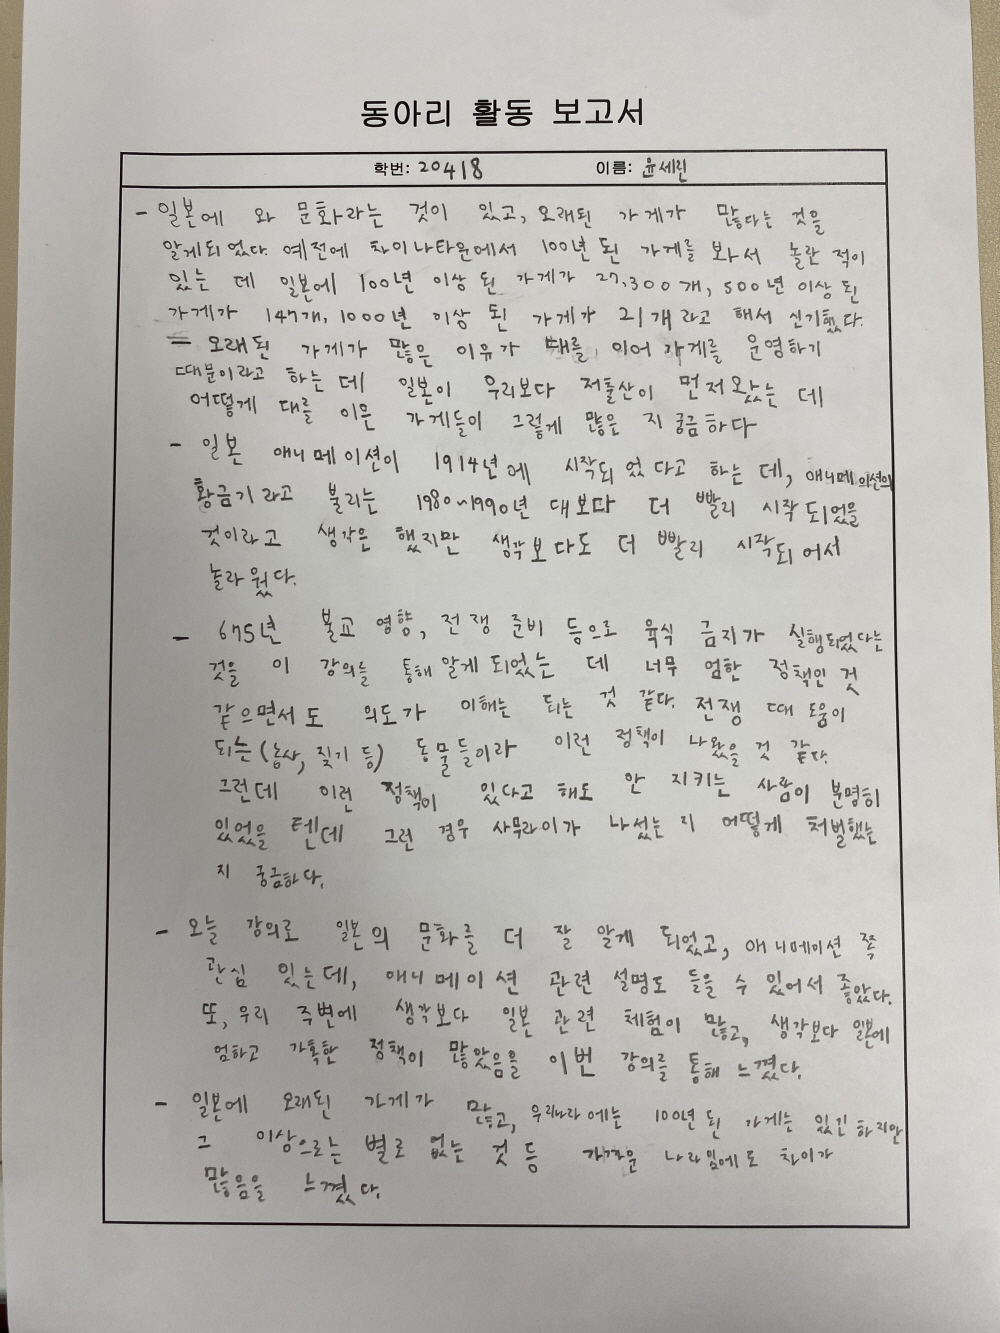 동아리 활동 보고서
학번: 20418 이름: 윤세린
- 일본에 와 문화라는 것이 있고, 오래된 가게가 많다는 것을
알게되었다. 예전에 차이나타운에서 100년 된 가게를 봐서 놀란 적이
있는 데 일본에 100년 이상 된 가게가 27,300개, 500년 이상 된
가게가 147개, 1000년 이상 된 가게가 21개라고 해서 신기했다.
- 오래된 가게가 많은 이유가 대를 이어 가게를 운영하기
때문이라고 하는 데 일본이 우리보다 저출산이 먼저 왔는 데
어떻게 대를 이은 가게들이 그렇게 많은 지 궁금하다
- 일본 애니메이션이 1914년에 시작되었다고 하는 데, 애니메이션의
황금기라고 불리는 1980~1990년 대보다 더 빨리 시작되었을
것이라고 생각은 했지만 생각보다도 더 빨리 시작되어서
놀라웠다.
- 675년 불교 영향, 전쟁 준비 등으로 육식 금지가 실행되었다는
것을 이 강의를 통해 알게 되었는 데 너무 엄한 정책인 것
같으면서도 의도가 이해는 되는 것 같다. 전쟁 때 도움이
되는 (농사, 짖기 등) 동물들이라 이런 정책이 나왔을 것 같다.
그런데 이런 정책이 있다고 해도 안 지키는 사람이 분명히
있었을 텐데 그런 경우 사무라이가 나섰는 지 어떻게 처벌했는
지 궁금하다.
- 오늘 강의로 일본의 문화를 더 잘 알게 되었고, 애니메이션 쪽
관심 있는데, 애니메이션 관련 설명도 들을 수 있어서 좋았다.
또, 우리 주변에 생각보다 일본 관련 체험이 많고, 생각보다 일본에
엄하고 가혹한 정책이 많았음을 이번 강의를 통해 느꼈다.
- 일본에 오래된 가게가 많고, 우리나라에는 100년 된 가게는 있긴 하지만
그 이상으로는 별로 없는 것 등 가까운 나라임에도 차이가
많음을 느꼈다.